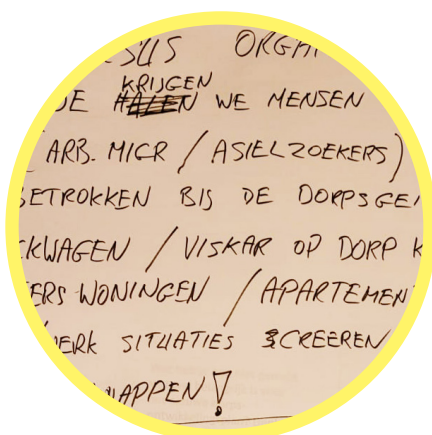 SUS ORGA
DE KRIJGEN WE MENSEN
(ARB. MIGR / ASIELZOEKERS)
BETROKKEN BIJ DE DORPSGE
CKWAGEN / VISKAR OP DORP K
ERS WONINGEN / APARTEMEN
WERK SITUATIES CREEREN
APPEN!